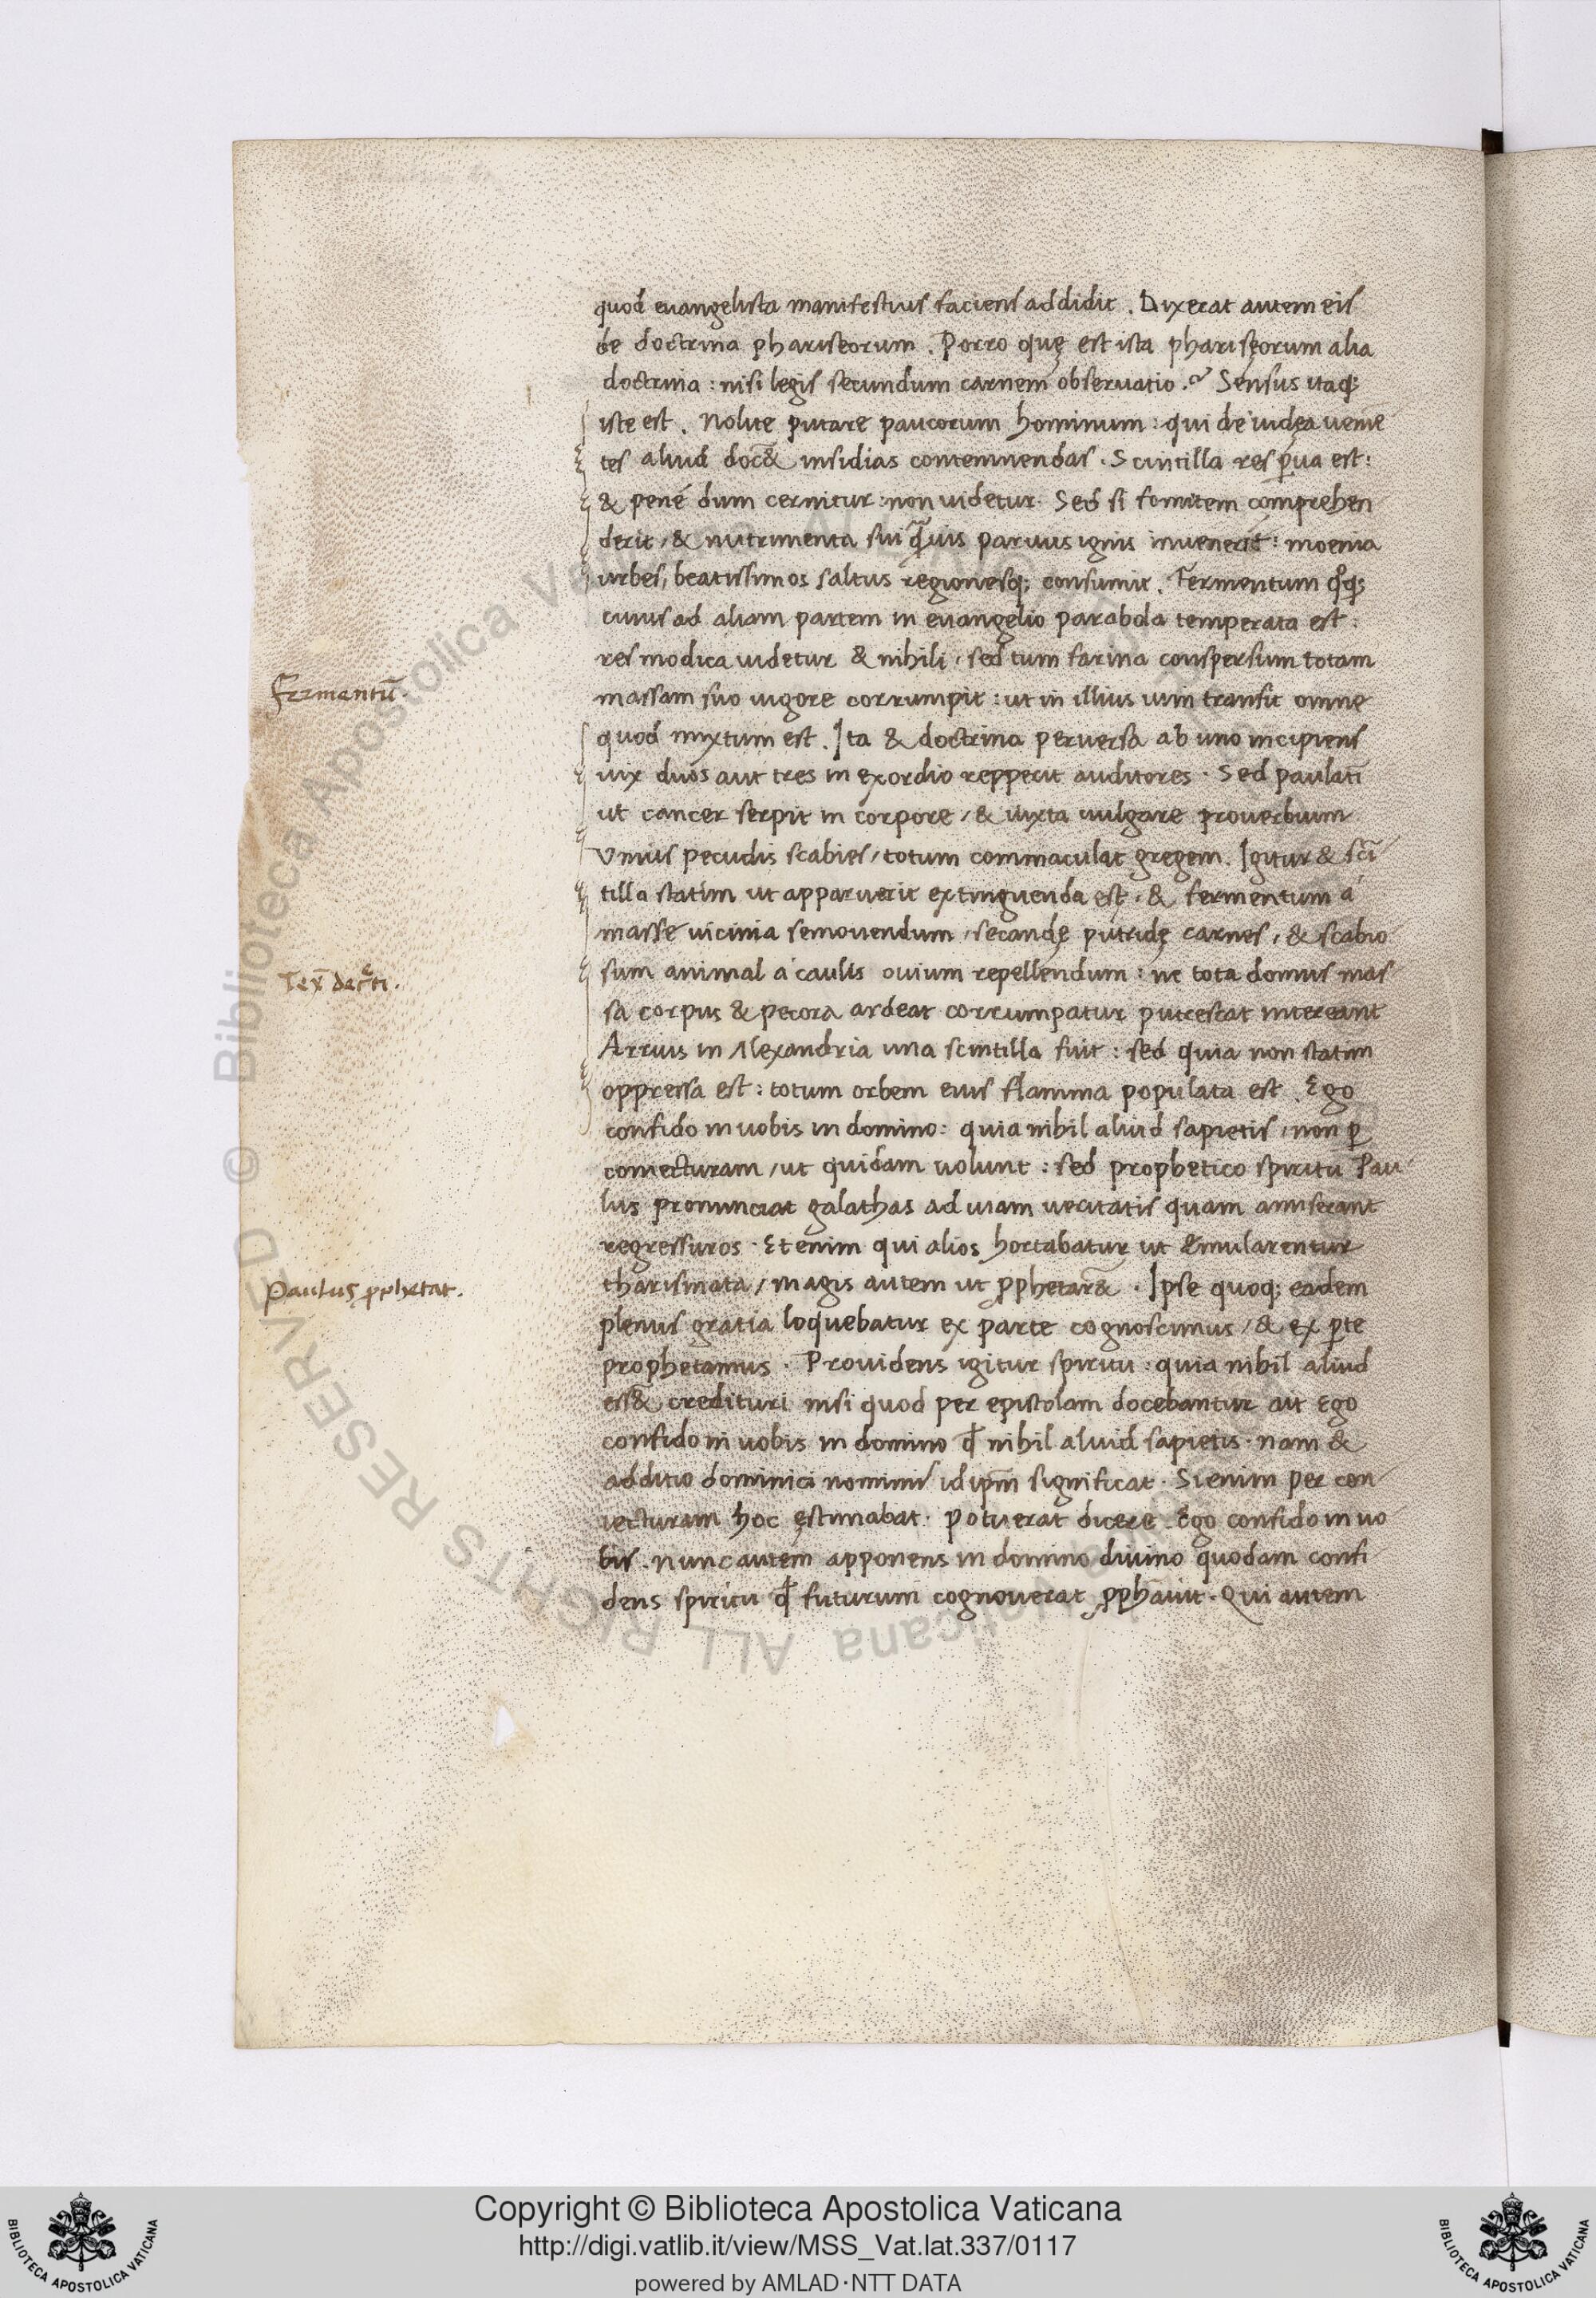 quod euangelista manifestius faciens addidit. Dixerat autem eis
de doctrina phariseorum. Porro quę est ista phariseorum alia
doctrina: nisi legis secundum carnem obseruatio.? Sensus itaq;
iste est. Nolite putare paucorum hominum: qui de iudęa uenie
tes aliud doc& insidias contemnendas. Scintilla res ꝑua est:
& penè dum cernitur: non uidetur. Sed si fomitem comprehen
derit, & nutrimenta sui q̃uis paruus ignis inuenerit: moenia
urbes, beatissimos saltus regionesq; consumit. Fermentum q°q;
cuius ad aliam partem in euangelio parabola temperata est:
res modica uidetur & nihili, sed tum farina conspersum totam
Fermentū.
massam suo uigore corrumpit: ut in illius uim transit omne
quod mixtum est. Ita & doctrina peruersa ab uno incipiens
uix duos aut tres in exordio repperit auditores. Sed paulati
ut cancer serpit in corpore, & iuxta uulgare prouerbium
Unius pecudis scabies, totum commaculat gregem. Igitur & sci
tilla statim ut apparuerit extinguenda est. & fermentum á
massę uicinia semouendum, secandę putridę carnes, & scabio
sum animal á caulis ouium repellendum: ne tota domus mas
Tex̄ dec̄ti.
sa corpus & pecora ardeat corrumpatur putrescat intereant
Arrius in Alexandria una scintilla fuit: sed quia non statim
oppressa est: totum orbem eius flamma populata est. Ego
confido in uobis in domino: quia nihil aliud sapietis, non ꝑ
coniecturam, ut quidam uolunt: sed prophetico spiritu Pau
lus pronunciat galathas ad uiam ueritatis quam amiserant
regressuros. Etenim qui alios hortabatur ut ęmularentur
tharismata, magis autem ut ꝓphetar&. Ipse quoq; eadem
Paulus ꝓphetat.
plenus gratia loquebatur ex parte cognoscimus, & ex ꝑte
prophetamus. Prouidens igitur spiritu: quia nihil aliud
ess& credituri nisi quod per epistolam docebantur ait Ego
confido in uobis in domino q̄ nihil aliud sapietis. nam &
additio dominici nominis id ipm̄ significat. Si enim per con
iecturam hoc ęstimabat. potuerat dicere Ego confido in uo
bis. nunc autem apponens in domino diuino quodam confi
dens spiritu q̄ futurum cognouerat ꝓphauit. Qui autem
Copyright © Biblioteca Apostolica Vaticana
http://digi.vatlib.it/view/MSS_Vat.lat.337/0117
powered by AMLAD·NTT DATA